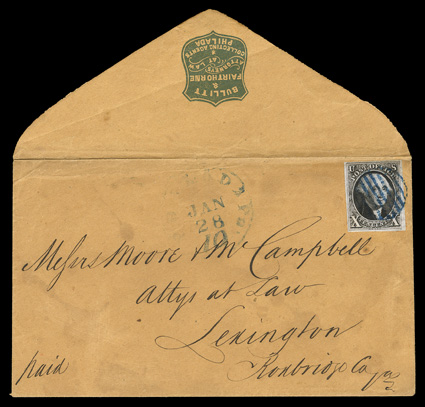 BULLITT
&
FAIRTHORNE
ATTORNEYS AT LAW
&
COLLECTING AGENTS
PHILADA
U S
POST OFFICE
X CENTS X
JAN
28
10
Messrs Moore & McCampbell
Attys at Law
Lexington
Ronbridge Co
Va
Paid